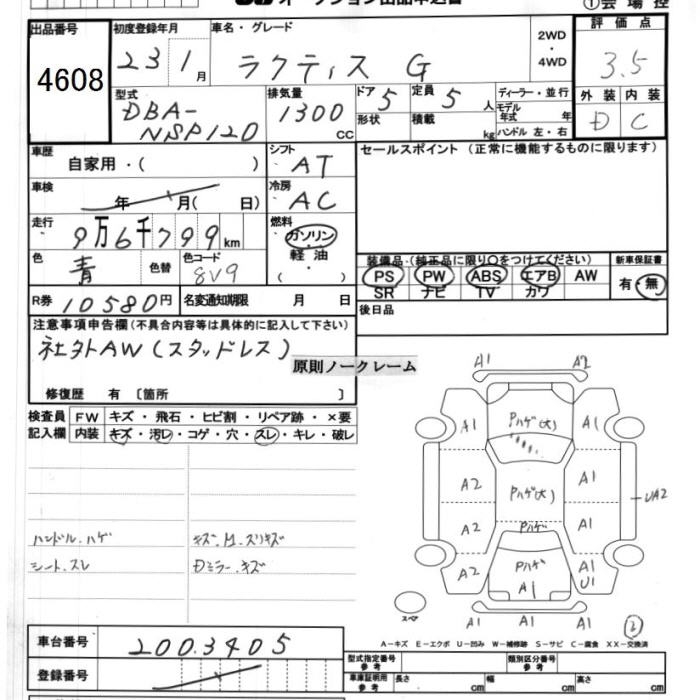 オークション出品申込書
①会場控
出品番号
4608
初度登録年月
23 1月
車名・グレード
ラクティス G
2WD
・
4WD
評価点
3.5
型式
DBA-
NSP120
排気量
1300
cc
ドア
5
形状
定員
5人
積載
kg
ディーラー・並行
モデル
年式 年
ハンドル 左・右
外装 内装
D C
車歴
自家用・( )
シフト
AT
セールスポイント(正常に機能するものに限ります)
車検
年 月( 日)
冷房
AC
走行
9万6千799km
燃料
ガソリン
軽油
・
色
青
色替
色コード
8V9
装備品・(純正品に限り○をつけてください)
PS PW ABS エアB AW
SR ナビ TV カワ
新車保証書
有・無
R券 10580円
名変通知期限 月 日
後日品
注意事項申告欄(不具合内容等は具体的に記入して下さい)
社外AW(スタッドレス)
原則ノークレーム
修復歴 有 〔箇所 〕
検査員
記入欄
FW キズ・飛石・ヒビ割・リペア跡・×要
内装 キズ・汚レ・コゲ・穴・スレ・キレ・破レ
ハンドル.ハゲ
シート.スレ
キズ.M.スリキズ
Dミラー.キズ
A1 A2
A1 Pハゲ(大) A1
A2 Pハゲ(大) A1
UA2
A2 Pハゲ A1
A2 Pハゲ A1
A1 U1
A1 A1 A1
スペア
3
A-キズ E-エクボ U-凹み W-補修跡 S-サビ C-腐食 XX-交換済
車台番号
2003405
登録番号
型式指定番号
参考
類別区分番号
参考
車庫証明用
参考
長さ cm
幅 cm
高さ cm